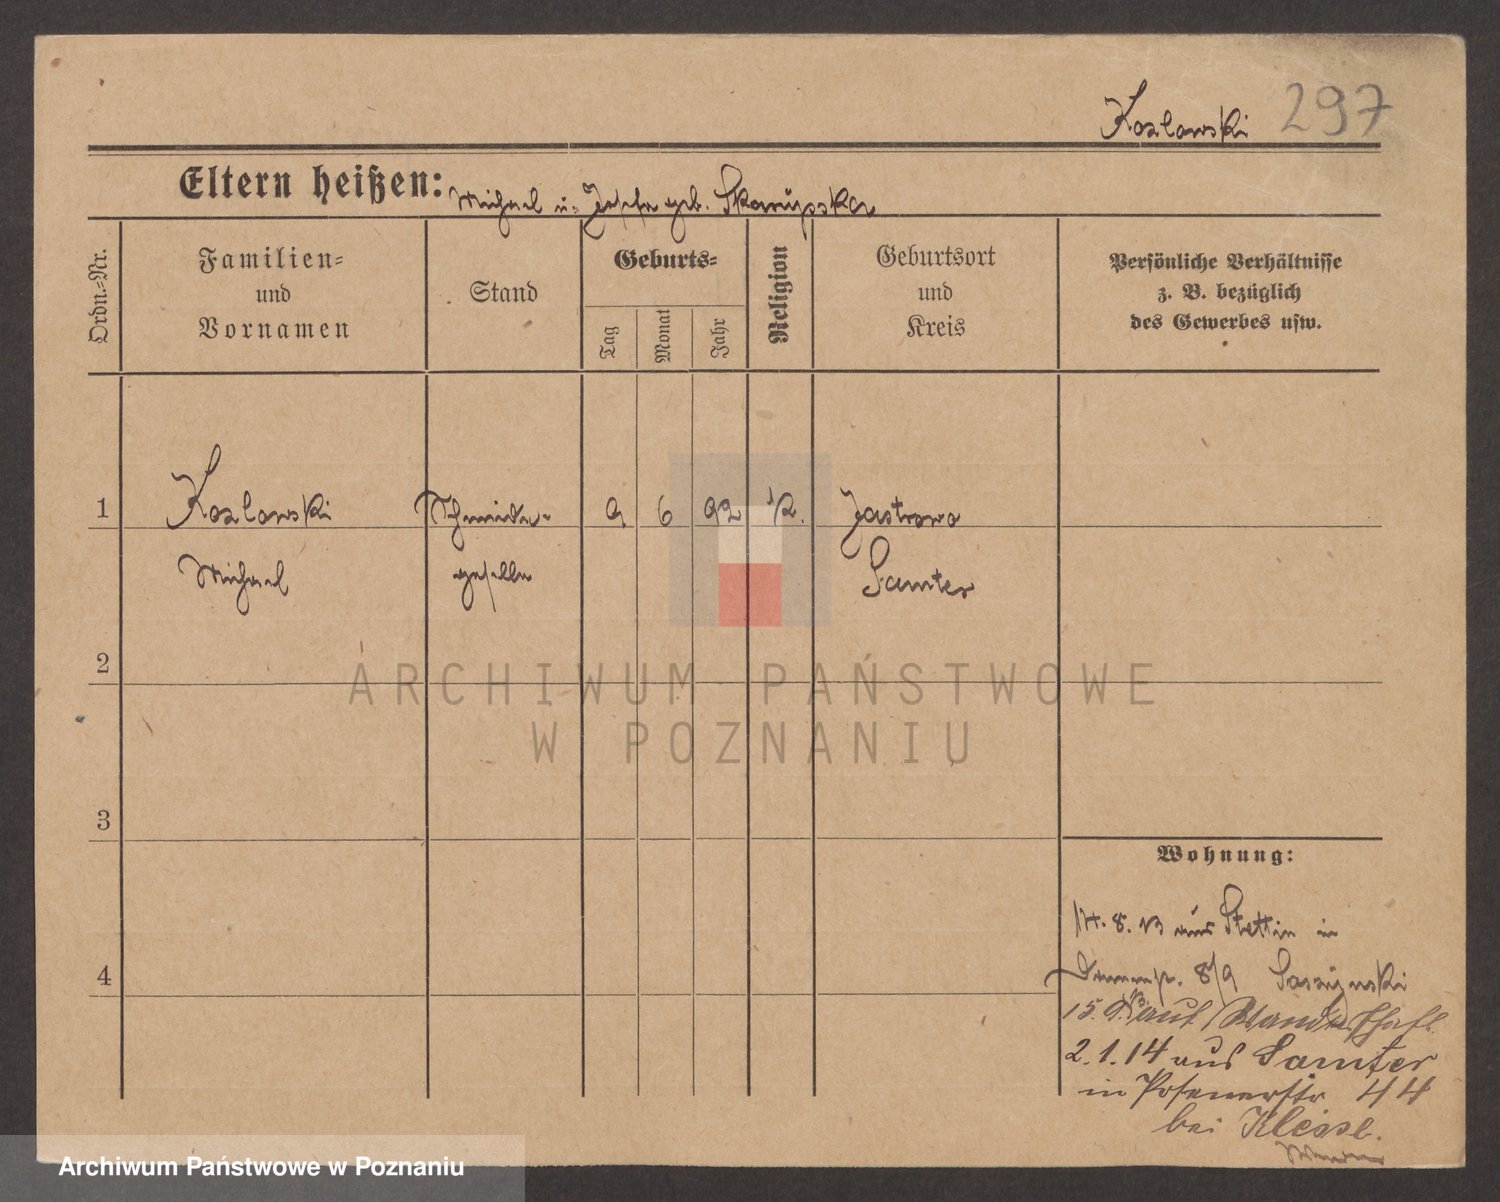 Kozlowski 297
Eltern heißen: Michael u. Josefa geb. Skorupska
Ordn.-Nr.
Familien-
und
Vornamen
Stand
Geburts-
Tag
Monat
Jahr
Religion
Geburtsort
und
Kreis
Persönliche Verhältnisse
z. B. bezüglich
des Gewerbes usw.
1 Kozlowski Schneider- 9 6 92 k. Jastrowo
Michael geselle Samter
2
ARCHIWUM PAŃSTWOWE
W POZNANIU
3
Wohnung:
14. 8. 13 aus Stettin in
8/9
4
15. 9. 13 auf Wanderschaft
2. 1. 14 aus Samter
in Posenerstr 44
bei
Archiwum Państwowe w Poznaniu